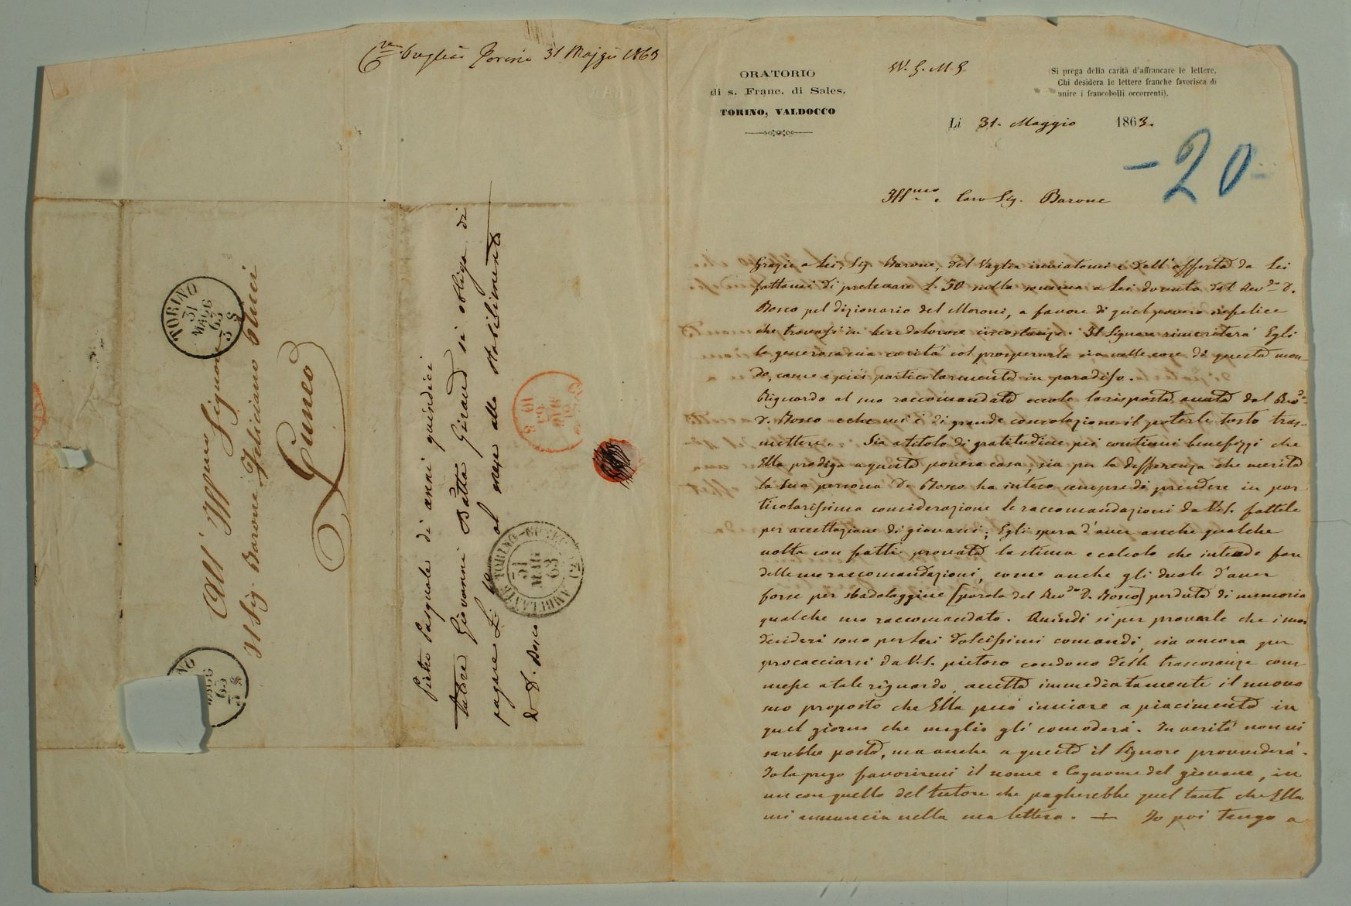 Torino 31 Maggio 1863
ORATORIO
di s. Franc. di Sales.
TORINO, VALDOCCO
W. G. M. G.
(Si prega della carità d'affrancare le lettere.
Chi desidera le lettere franche favorisca di
unire i francobolli occorrenti).
Li 31. Maggio 1863.
-20-
Ill.mo e Caro Sig. Barone
Grazie a Lei, Sig. Barone, del Vaglia inviatomi e dell'offerta da Lei
fattami di prelevare L. 50 sulla somma a Lei dovuta dal Rev.do D.
Bosco pel dizionario del Moroni, a favore di quel povero infelice
che trovasi in sì dolorose circostanze. Il Signore rimeriterà Egli
la generosa sua carità col prosperarla sia nelle cose di questo mon-
do, come e più particolarmente in paradiso.
Riguardo al suo raccomandato eccole la risposta avuta dal Rev.do
D. Bosco e che mi è di grande consolazione il poterle tosto tras-
mettere. Sia a titolo di gratitudine pei continui benefizj che
Ella prodiga a questa povera casa, sia per la defferenza che merita
la sua persona D. Bosco ha inteso sempre di prendere in par-
ticolarissima considerazione le raccomandazioni da V. S. fattele
per accettazione di giovani; Egli spera d'aver anche qualche
volta con fatti provato la stima e calcolo che intende fare
delle sue raccomandazioni, come anche gli duole d'aver
forse per sbadataggine (parola del Rev.do D. Bosco) perduto di memoria
qualche suo raccomandato. Quindi si per provarle che i suoi
desideri sono per lui dolcissimi comandi, sia ancora per
procacciarsi da V. S. pietoso condono delle trascuranze com-
messe a tale riguardo, accetta immediatamente il nuovo
suo proposto che Ella può inviare a piacimento in
quel giorno che meglio gli comoderà. In verità non vi
sarebbe posto, ma anche a questo il Signore provvederà.
Io la prego favorirmi il nome e Cognome del giovane, in
un con quello del tutore che pagherebbe quel tanto che Ella
mi annuncia nella sua lettera. — Io poi tengo a
All' Ill.mo Signore
Il Sig. Barone Feliciano Ricci
Cuneo
TORINO
31
MAGG
63
3 S
TORINO
MAGG
63
3 S
Pietro Pasquale di anni quindici
tutore Giovanni Batta Giraud si obbliga di
pagare L. al mese allo stabilimento
di D. Bosco
AMBULANTE TORINO-CUNEO
31
MAG
63